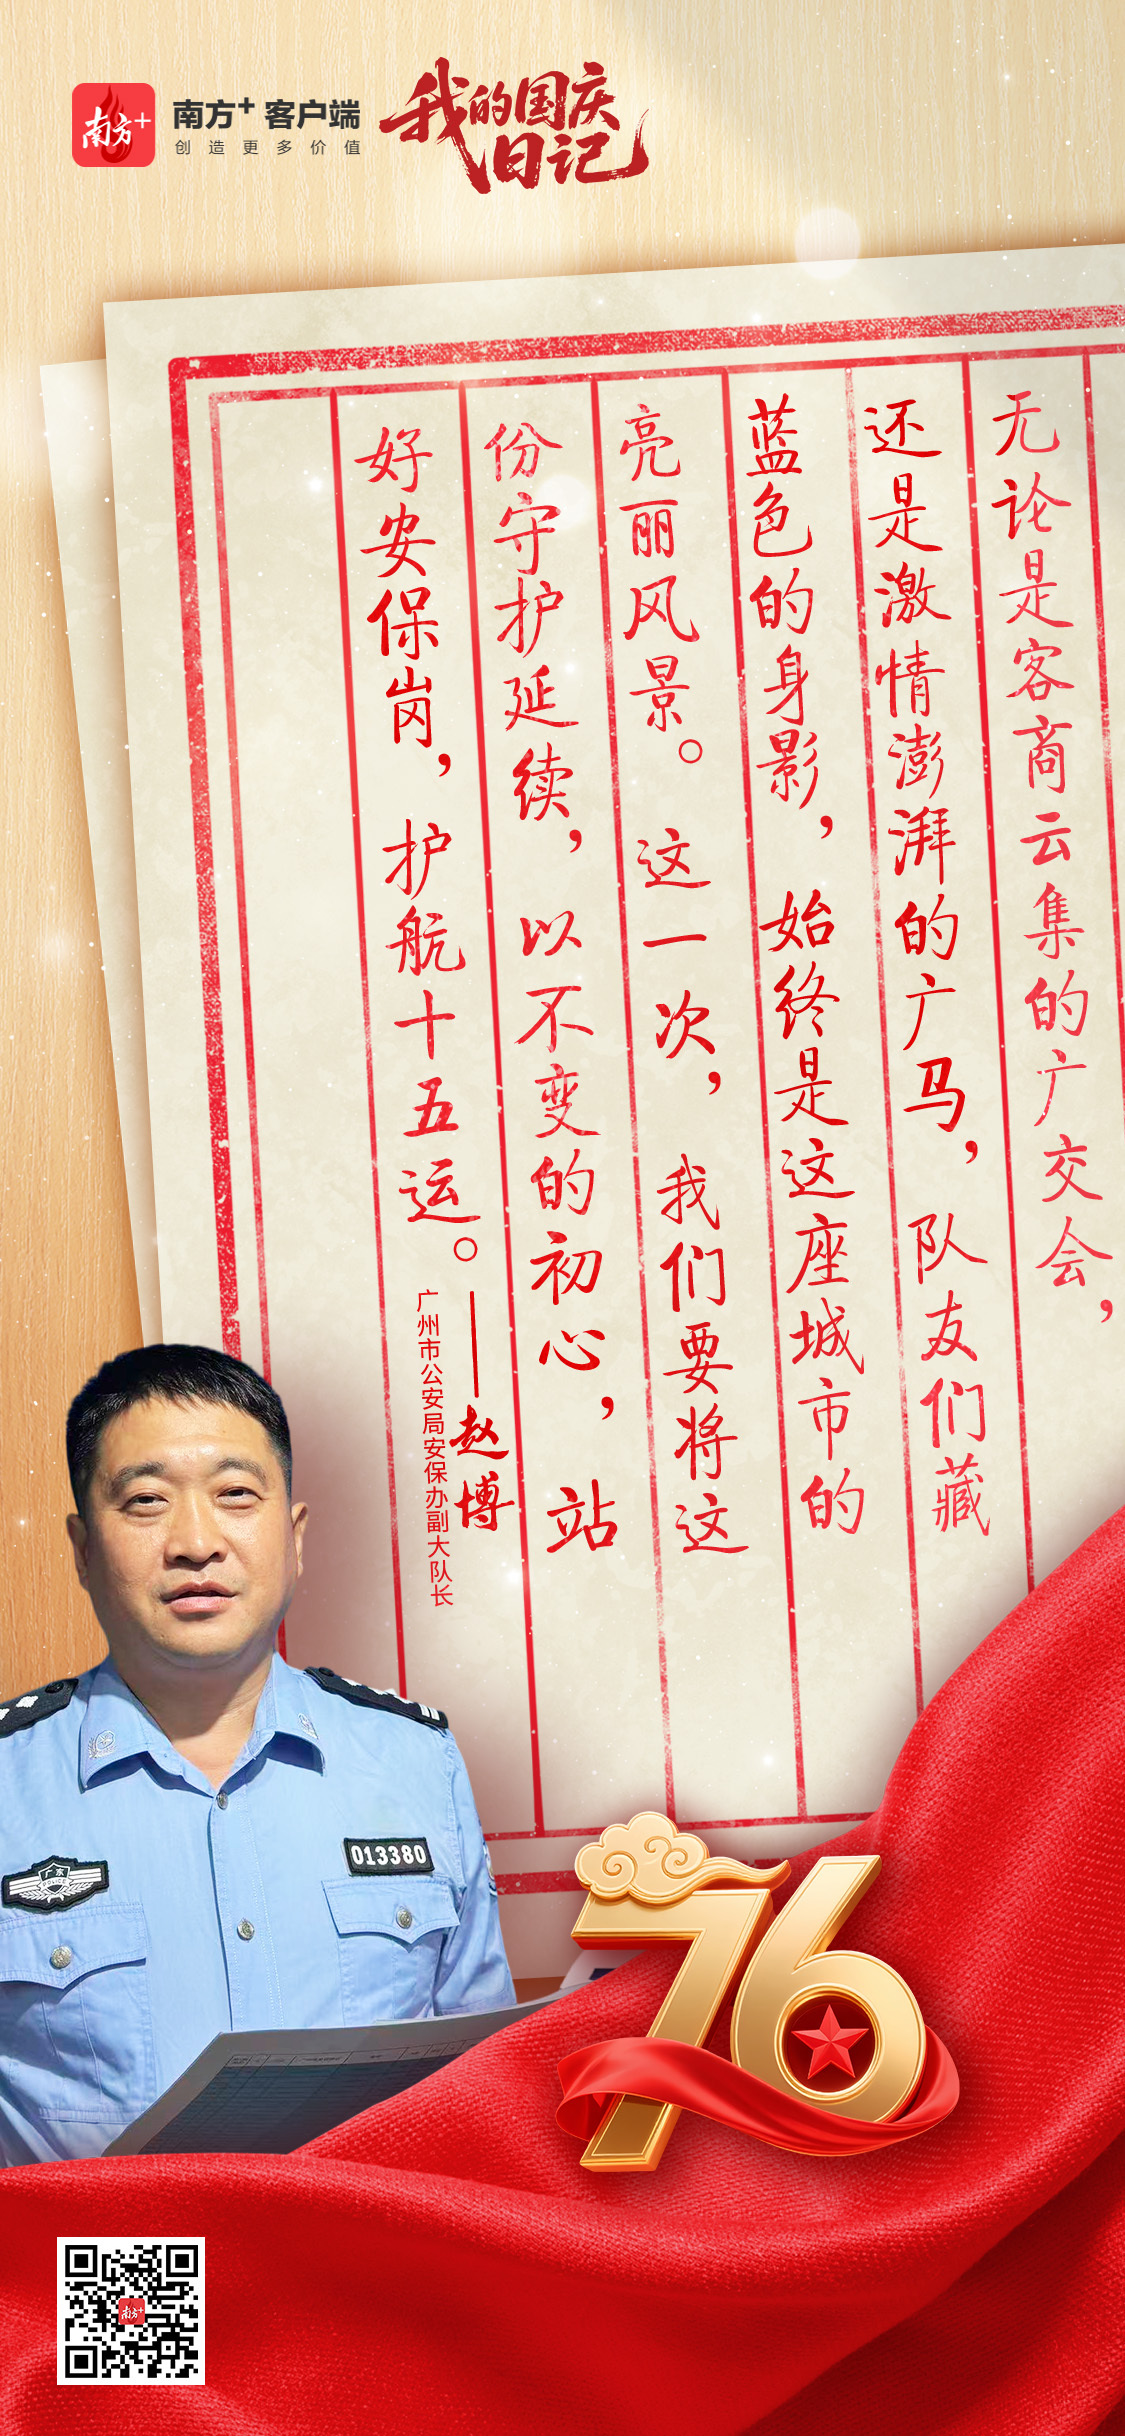 南方+
南方+ 客户端
创造更多价值
我的国庆
日记
无论是客商云集的广交会，
还是激情澎湃的广马，队友们藏
蓝色的身影，始终是这座城市的
亮丽风景。这一次，我们要将这
份守护延续，以不变的初心，站
好安保岗，护航十五运。
——赵博
广州市公安局安保办副大队长
广东
POLICE
013380
76
南方+